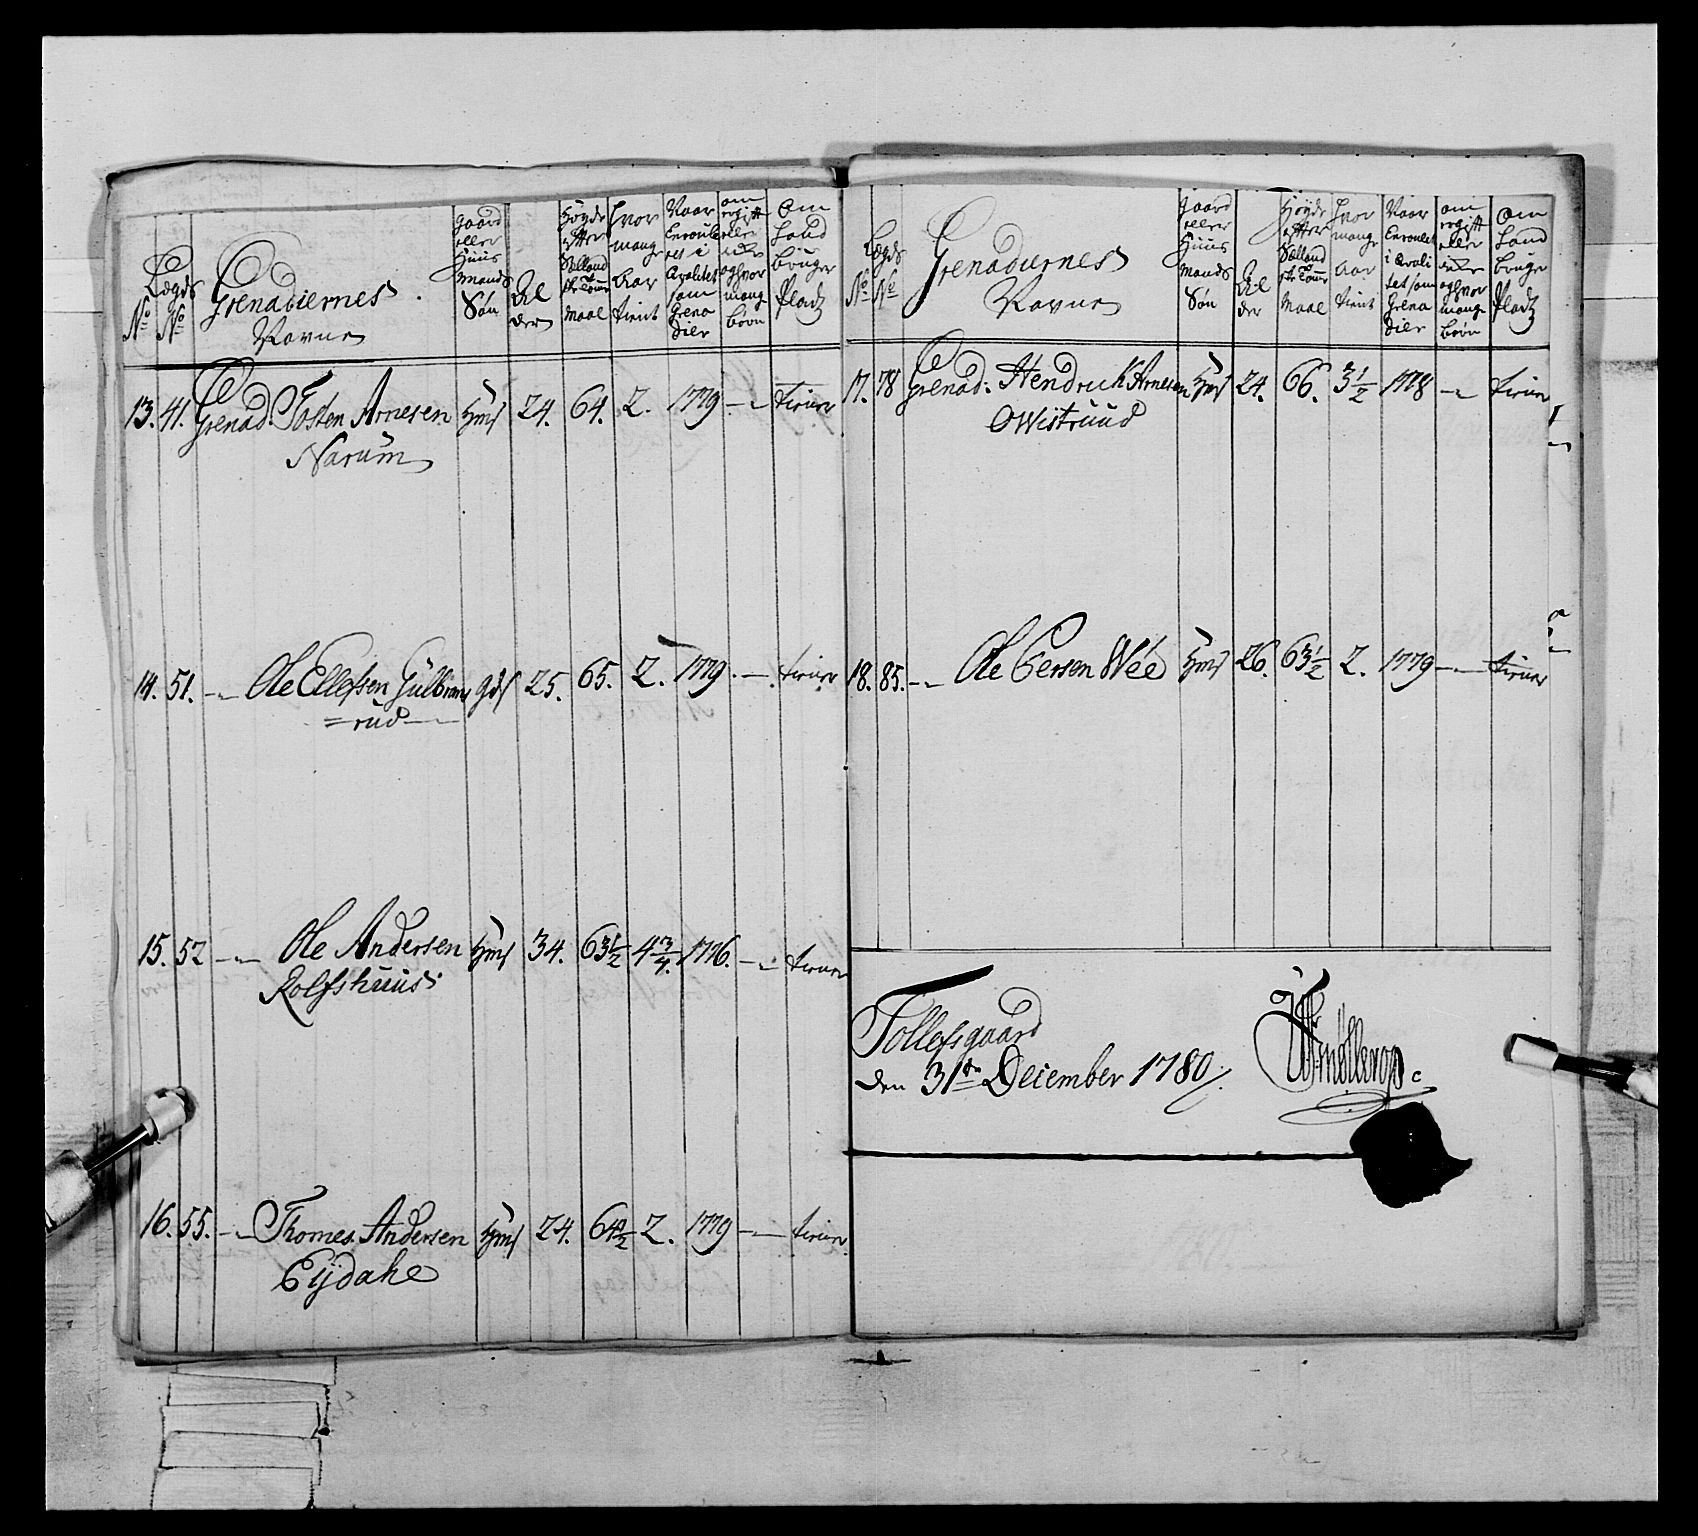 No
Lægds No
Grenadiernes Navne
gaard eller Huus mands Søn
Al der
Høyde efter Sælland ske Tomme Maal
hvor mange Aar tient
Naar Enroule ret i Qvalitet som Grena dier
om er gift eller icke og hvor mange børn
Om Land bruger Pladz
13. 41. Grenad. Tosten Arnesen Hms 24. 64. 2. 1779 -"- tiener
Narum
14. 51. -"- Ole Ellefsen Gulbrans gds 25. 65. 2. 1779. -"- tiener
=rud
15. 52 -"- Ole Andersen Hms 34. 63½ 4¾. 1776. -"- tiener
Rolfshuus
16. 55. -"- Thomes Andersen Hms 24. 64½ 2. 1779 -"- tiener
Eijdahl
No
Lægds No
Grenadeernes Navne
gaard eller Huus mands Søn
Al der
Høyde efter Sælland ske Tomme Maal
hvor mange Aar tient
Naar Enroulert i Qvali tet som Grena dier
om er gift eller icke og hvor mange børn
Om Land bruger Pladz
17. 78 Grenad: Hendrich Arnesen Hms 24. 66. 3½ 1778 -"- tiener
Qwistruud
18. 85. -"- Ole Persen Wée Hms 26. 63½ 2. 1779 -"- tiener
Tollefsgaard
den 31te December 1780